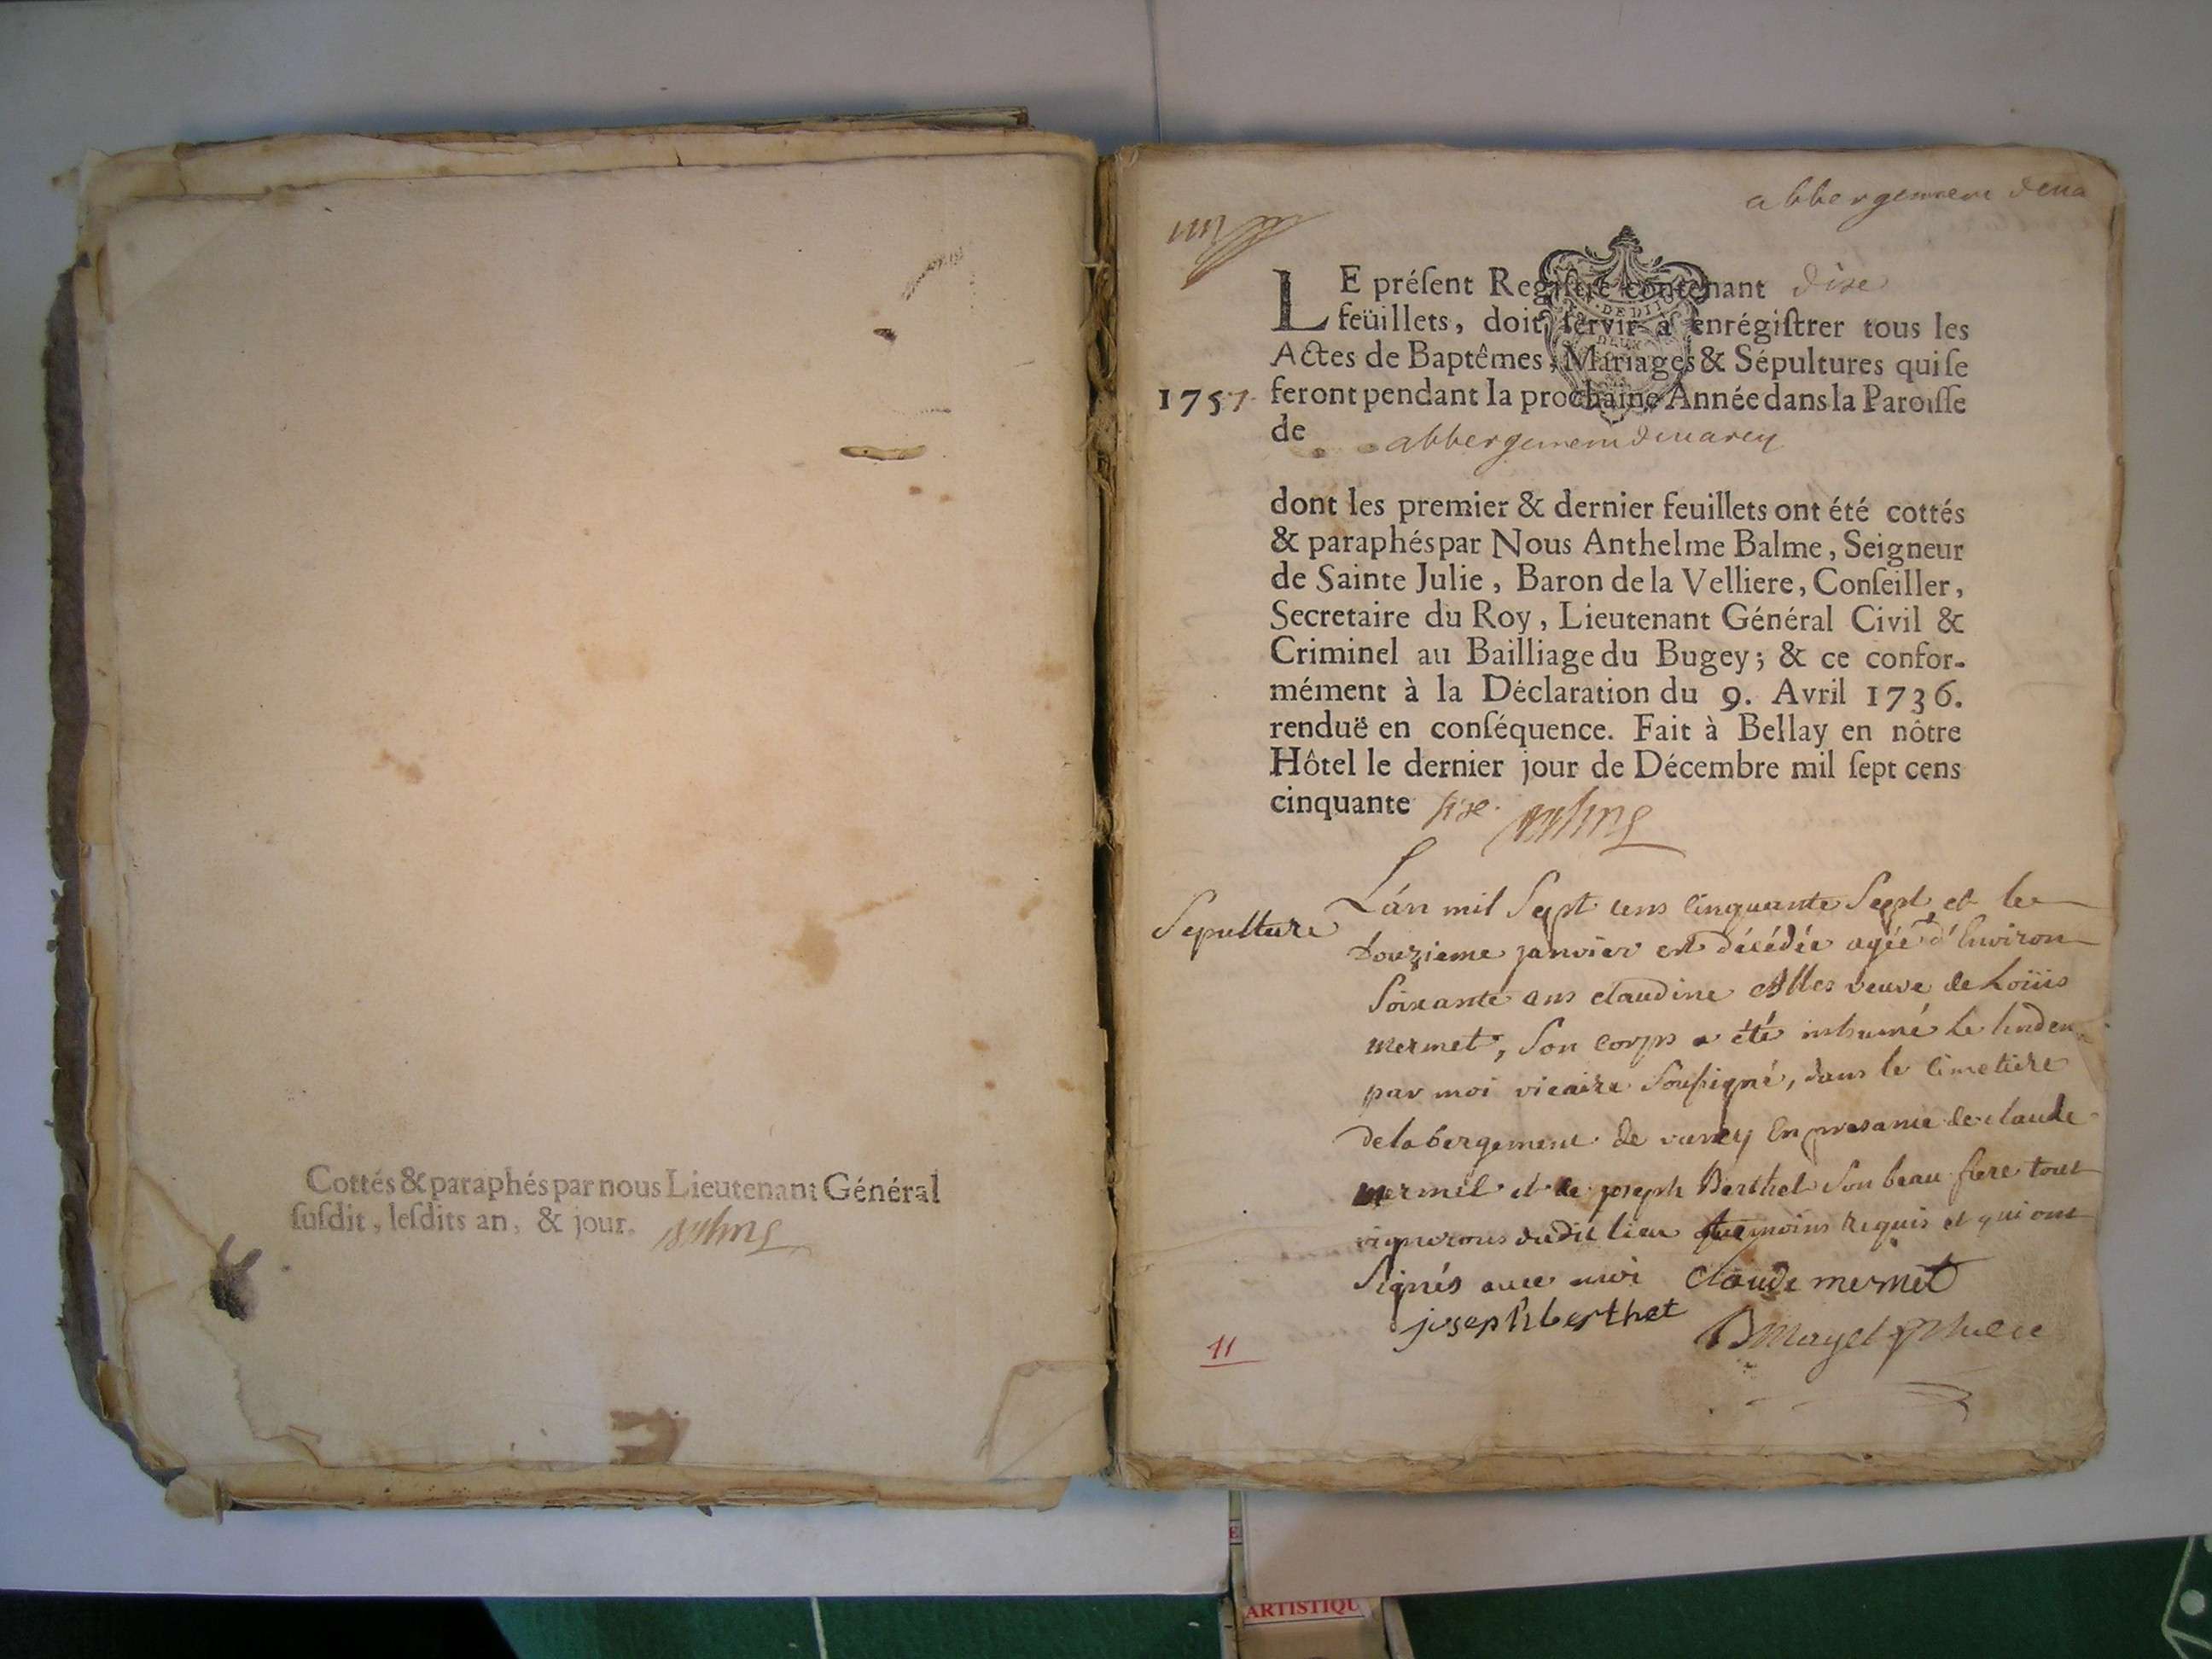 Cottés & paraphés par nous Lieutenant Général
ſuſdit, leſdits an, & jour.
abbergement deua
LE préſent Regiſtre contenant dixe
feüillets, doit ſervir a enrégiſtrer tous les
Actes de Baptêmes, Mariages & Sépultures qui ſe
1757. feront pendant la prochaine Année dans la Paroiſſe
de abbergement deuarey
dont les premier & dernier feuillets ont été cottés
& paraphés par Nous Anthelme Balme, Seigneur
de Sainte Julie, Baron de la Velliere, Conſeiller,
Secretaire du Roy, Lieutenant Général Civil &
Criminel au Bailliage du Bugey; & ce confor-
mément à la Déclaration du 9. Avril 1736.
renduë en conſéquence. Fait à Bellay en nôtre
Hôtel le dernier jour de Décembre mil ſept cens
cinquante sixe.
Sepulture
L'an mil Sept cens Cinquante Sept et le
douzieme janvier est décédée agée d'Environ
Soixante ans claudine veuve de Loüis
mermet, Son corps a été inhumé le lendem
par moi vicaire Soussigné, dans le Cimetiere
de labergement de varey En presance de claude
mermet et de joseph Berthet Son beau frere tous
vignerons dudit lieu temoins requis et qui ont
Signés avec moi claude mermet
joseph berthet
B Mayet
11
ARTISTIQU